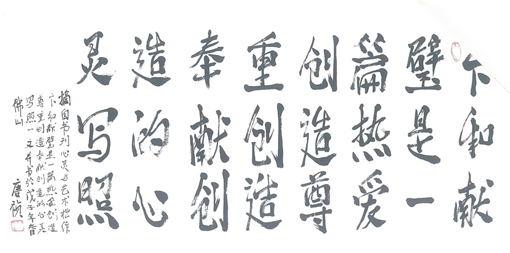 卞和献
璧是一
篇热爱
创造尊
重创造
奉献创
造的心
灵写照
摘自书刊心灵与艺术拙作
卞和献璧是一篇热爱创造
尊重创造奉献创造的心灵
写照一文并书于戊子年春
佛山
唐